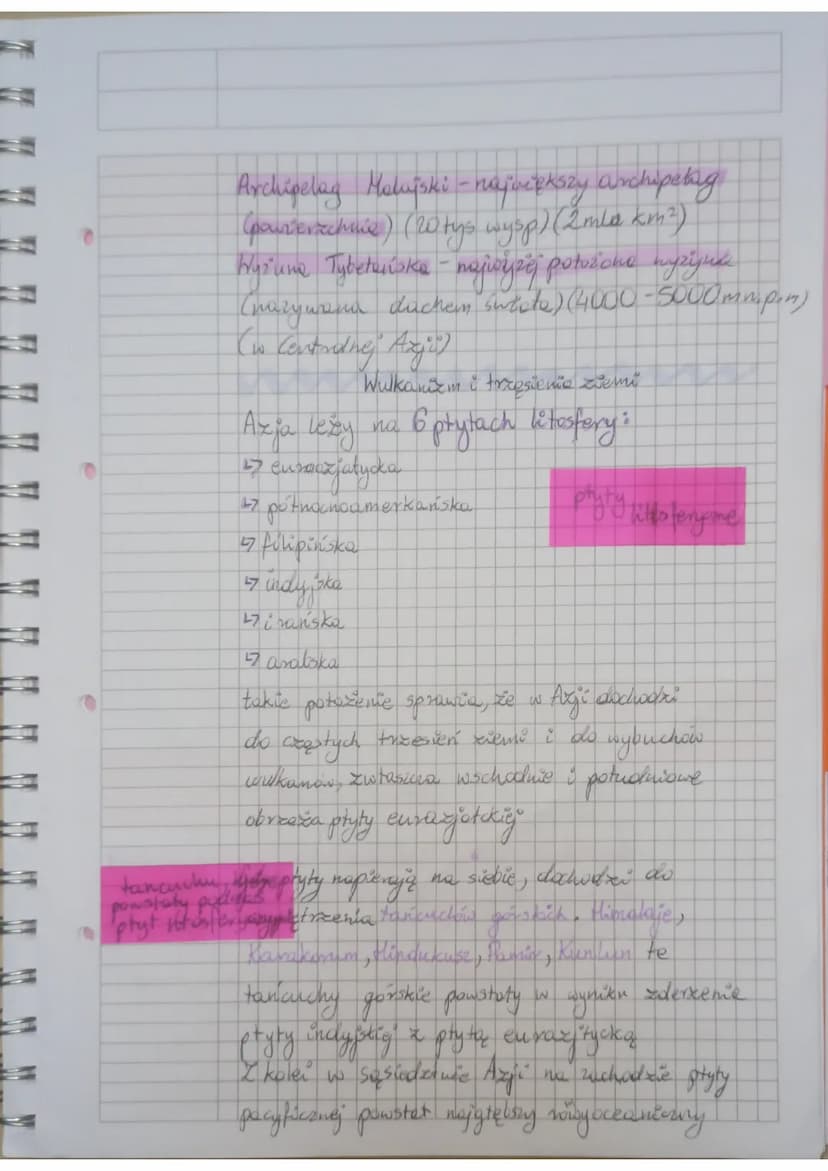 Archipelag Malajski - największy archipelag
(powierzchnia) (20 tys wysp) (2 mln km²)
Wyżyna Tybetańska - najwyżej położona wyżyna
(nazywana dachem świata) (4000 - 5000 m n.p.m)
(w Centralnej Azji)
Wulkanizm i trzęsienia ziemi
Azja leży na 6 płytach litosfery:
↳ euroazjatycka
↳ północnoamerkańska
↳ filipińska
↳ indyjska
↳ irańska
↳ arabska
płyty
litosferyczne
takie położenie sprawia, że w Azji dochodzi
do częstych trzęsień ziemi i do wybuchów
wulkanów, zwłaszcza wschodnie i południowe
obrzeża płyty eurazjatckiej
łańcuchy,
powstały podczas
płyt
płyty napierają na siebie, dochodzi do
łańcuchów górskich. Himalaje,
Karakorum, Hindukusz, Pamir, Kunlun te
łańcuchy górskie powstały w wyniku zderzenie
płyty indyjskiej z płytą eurazjtycką
Z kolei w sąsiedztwie Azji na zachodzie płyty
pacyficznej powstał najgłębszy rów oceaniczny